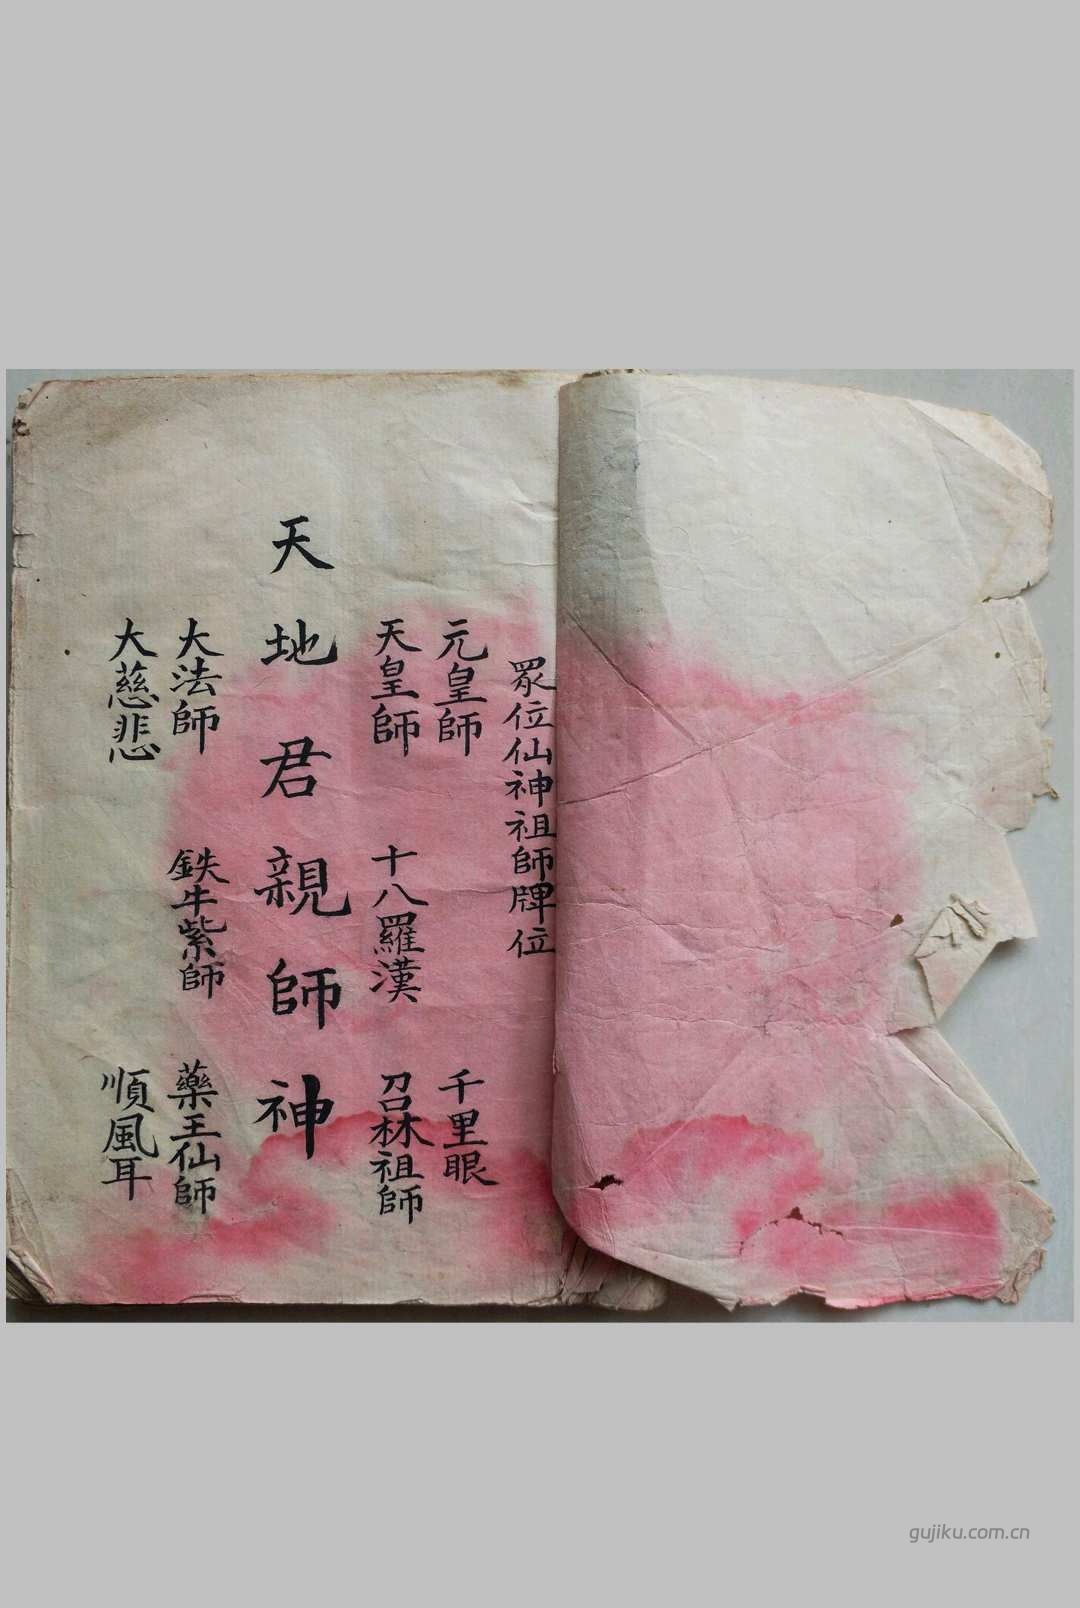 眾位仙神祖師牌位
元皇師 千里眼
天皇師 十八羅漢 召林祖師
天地君親師神
大法師 鉄牛紫師 藥王仙師
大慈悲 順風耳
gujiku.com.cn